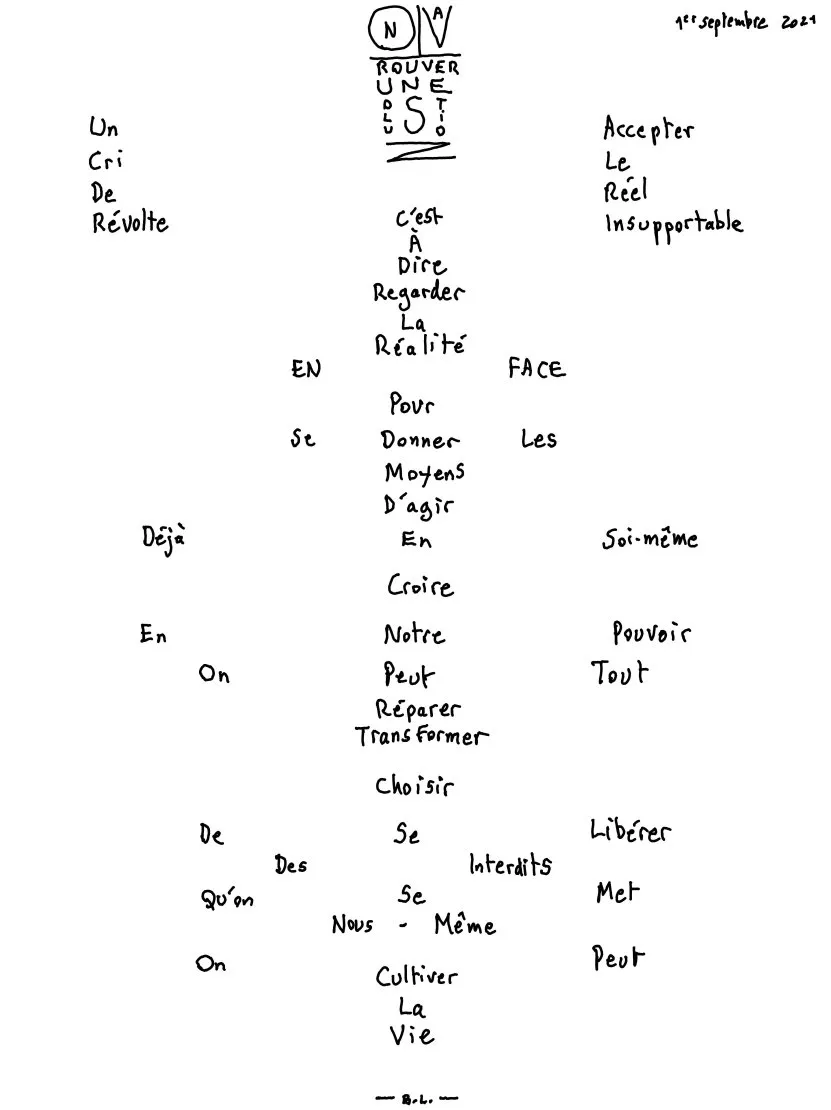 1er septembre 2021
ON VA
TROUVER
UNE
SOLUTION
Un
Cri
De
Révolte
Accepter
Le
Réel
Insupportable
C'est
À
Dire
Regarder
La
Réalité
EN FACE
Pour
Se Donner Les
Moyens
D'agir
Déjà En Soi-même
Croire
En Notre Pouvoir
On Peut Tout
Réparer
Transformer
Choisir
De Se Libérer
Des Interdits
Qu'on Se Met
Nous - Même
On Peut
Cultiver
La
Vie
— B.L. —